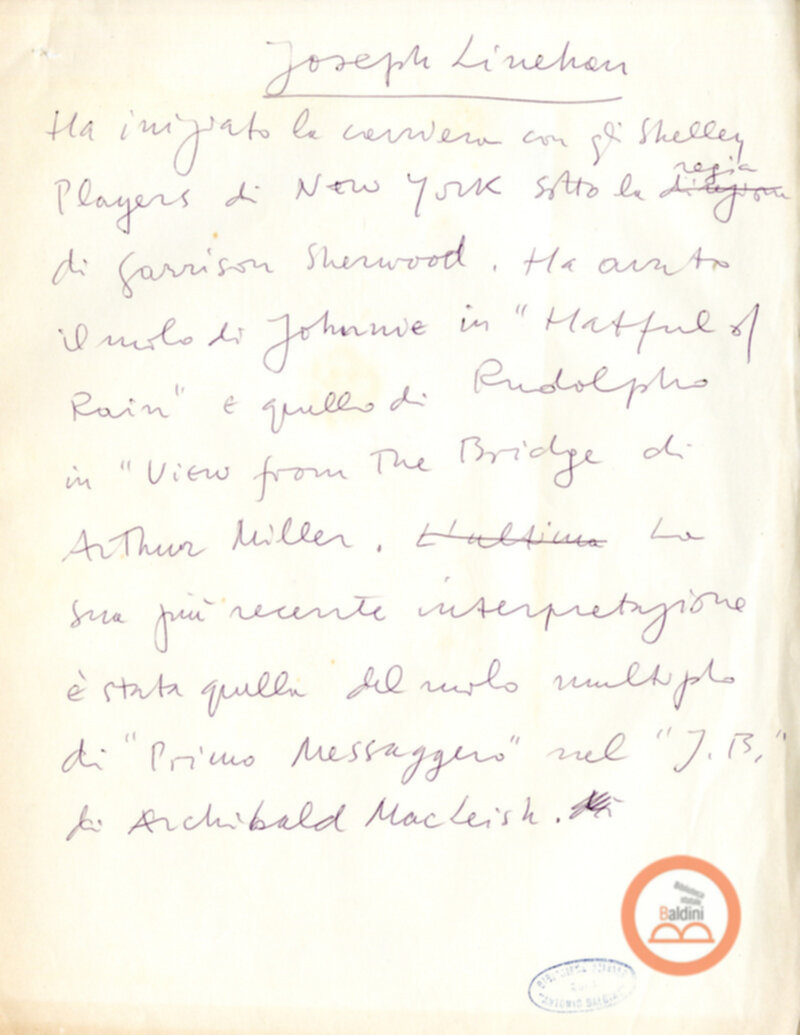 Joseph Linehan
Ha iniziato la carriera con gli Shelley
regia
Players di New York sotto la direzione
di Garrison Sherwood. Ha avuto
il ruolo di Johnnie in "Hatful of
Rain" e quello di Rudolpho
in "View from The Bridge di
Arthur Miller. L'ultima La
sua più recente interpretazione
è stata quella del ruolo multiplo
di "Primo Messaggero" nel "J.B."
di Archibald MacLeish.
Biblioteca
statale
Baldini